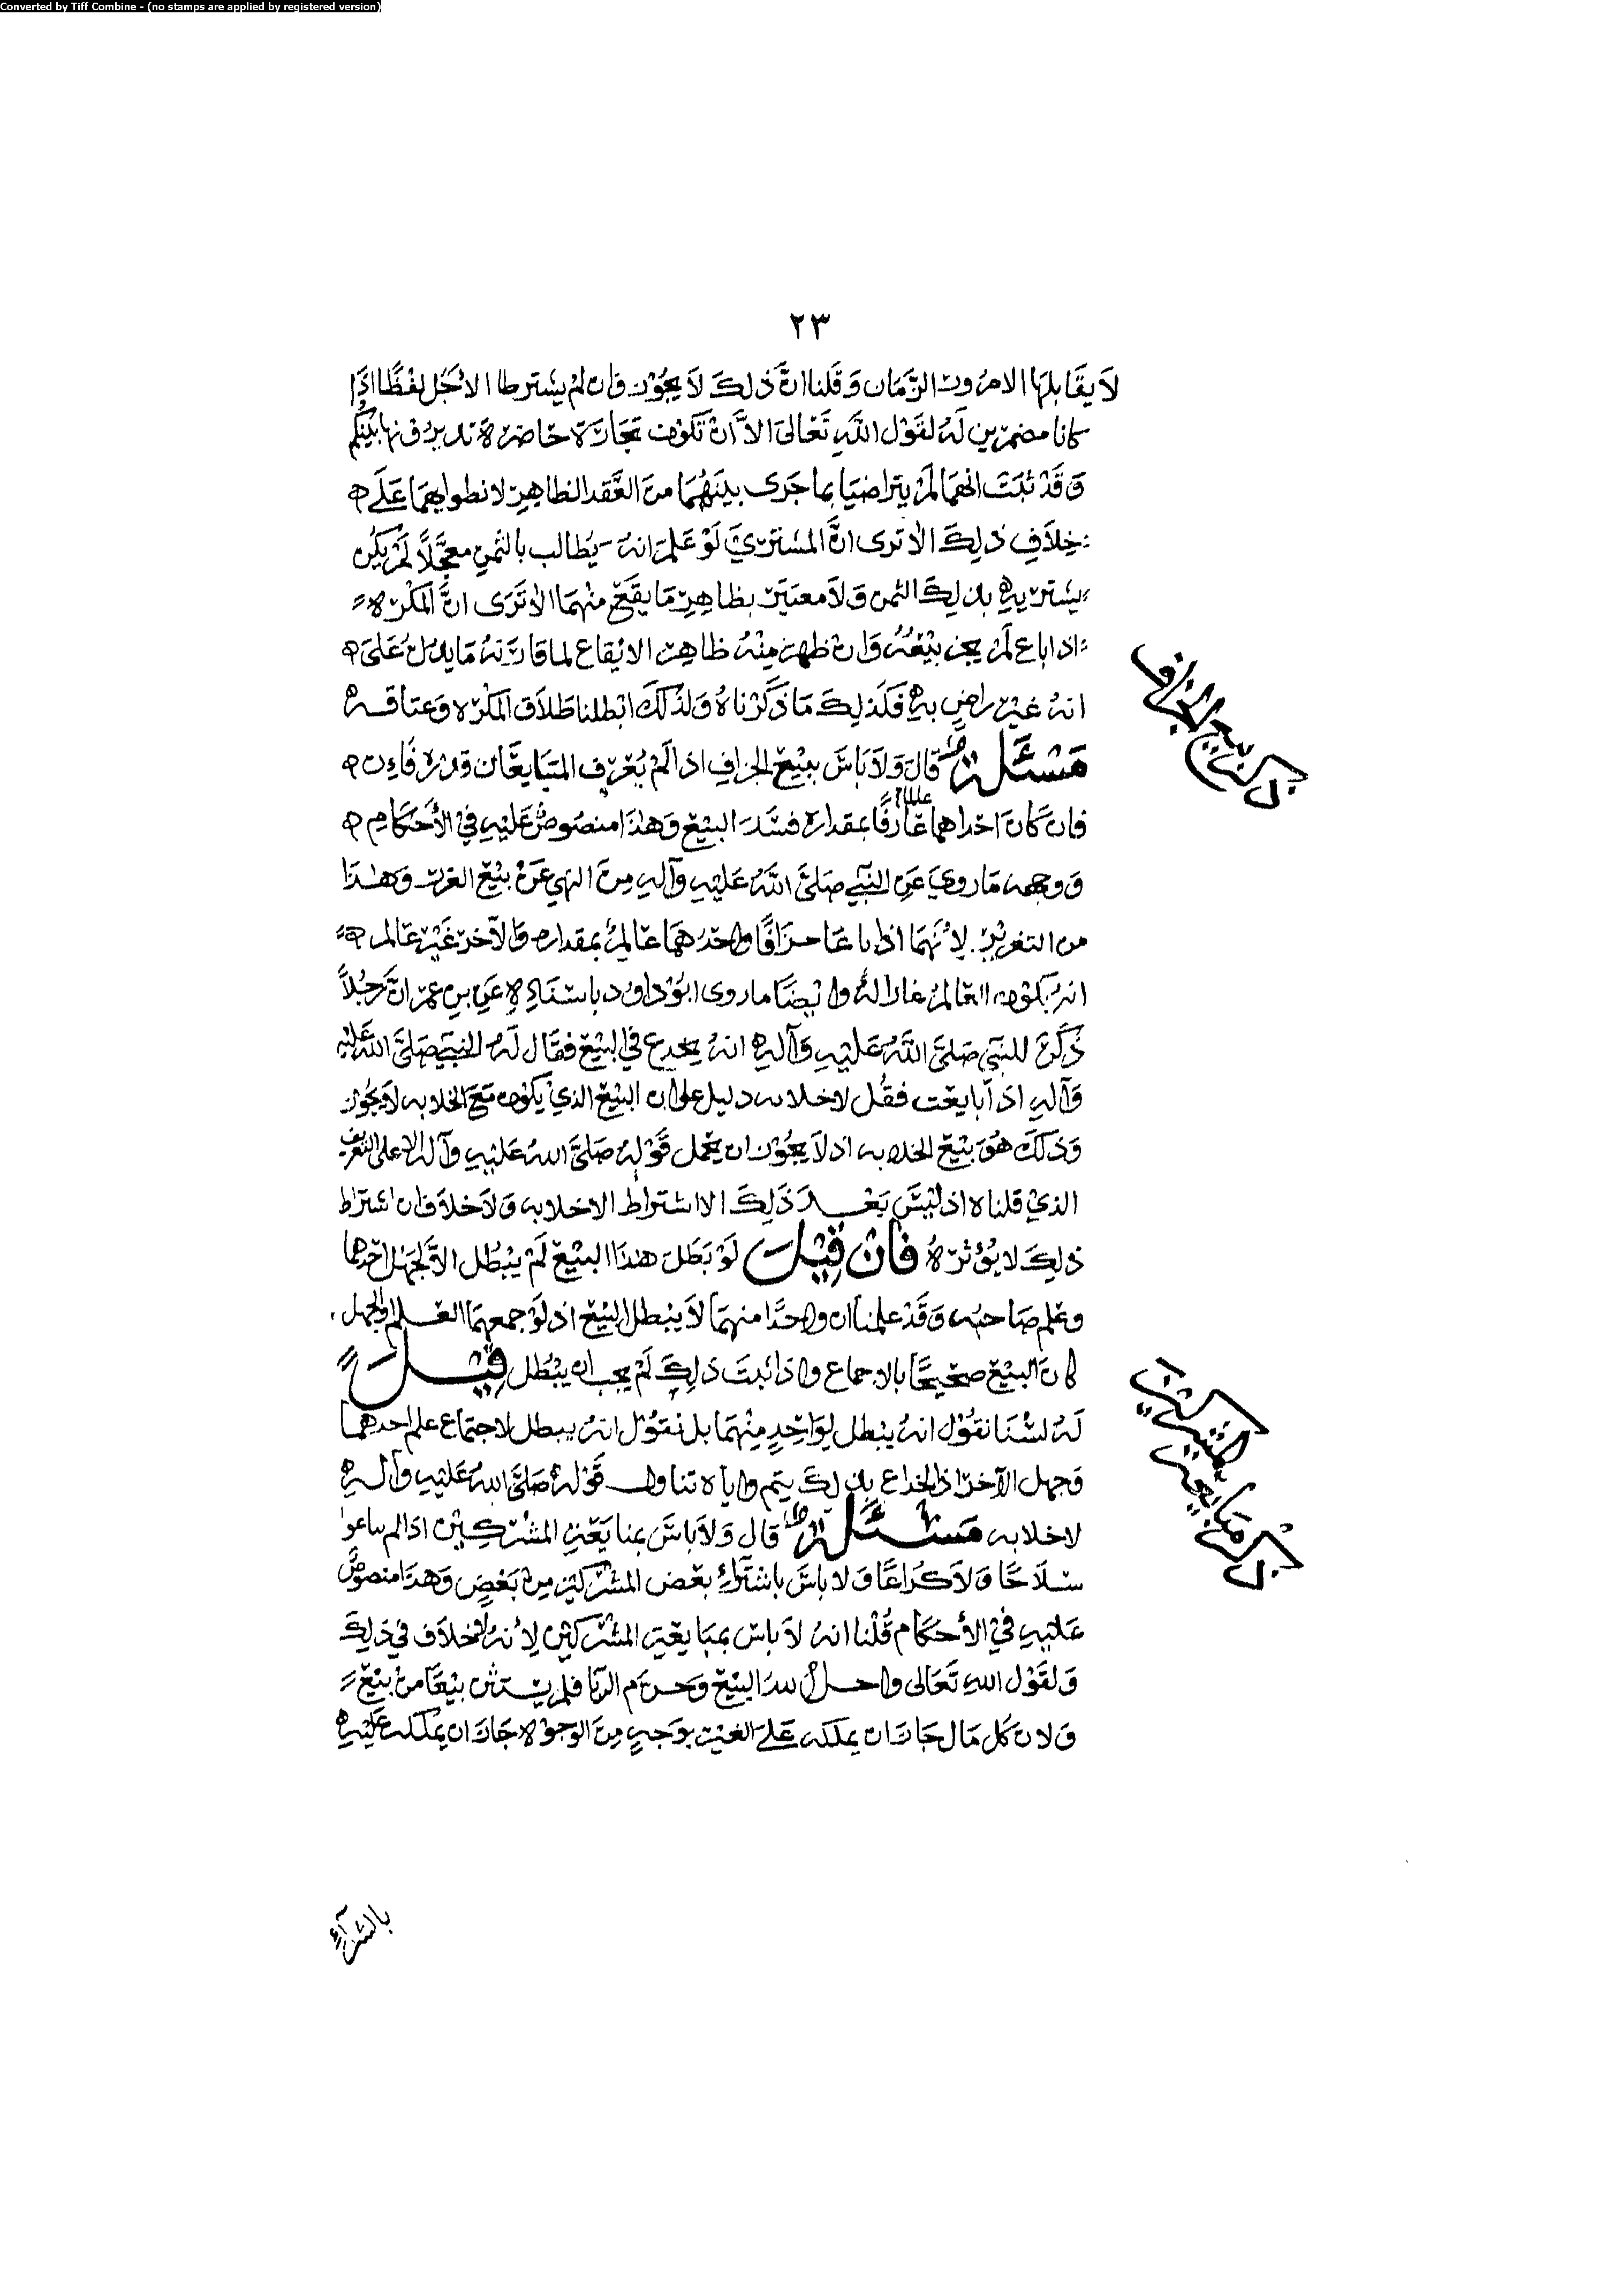 Converted by Tiff Combine - (no stamps are applied by registered version)
٢٣
لا يقابلها الا مرور الزمان وقلنا ان ذلك لا يجوز وان لم يشترطا الاجل لفظا اذا
كانا مضمرين له لقول الله تعالى الا ان تكون تجارة حاضرة تديرونها بينكم
وقد ثبت انهما لم يتراضيا بما جرى بينهما من العقد الظاهر لانطوائهما على
خلاف ذلك الا ترى ان المشتري لو علم انه يطالب بالثمن معجلا لم يكن
يشتريه بذلك الثمن ولا معتبر بظاهر ما يقع منهما الا ترى ان المكره
اذا باع لم يجز بيعه وان ظهر منه ظاهر الايقاع لما قارنه ما يدل على
انه غير راض به فكذلك ما ذكرناه ولذلك ابطلنا طلاق المكره وعتاقه
مسئلة قال ولا باس ببيع الجزاف اذا لم يعرف المتبايعان قدره فان
فان كان احداهما عارفا بمقداره فسد البيع وهذا منصوص عليه في الأحكام
ووجهه ما روي عن النبي صلى الله عليه وآله من النهي عن بيع الغرر وهذا
من التغرير لأنهما اذا باعا جزافا واحدهما عالم بمقداره والآخر غير عالم
انه يكون العالم غارا له وايضا ما روى ابو داود باسناده عن بن عمر ان رجلا
ذكر للنبي صلى الله عليه وآله انه يخدع في البيع فقال له النبي صلى الله عليه
وآله اذا بايعت فقل لا خلابه دليل على ان البيع الذي يكون مع الخلابه لا يجوز
وذلك هو بيع الخلابه اذ لا يجوز ان يحمل قوله صلى الله عليه وآله الا على التعريف
الذي قلناه اذ ليس بعد ذلك الا اشتراط الا خلابه ولا خلاف ان اشتراط
ذلك لا يؤثره فان قيل لو بطل هذا البيع لم يبطل الا لجهل احدهما
وعلم صاحبه وقد علمنا ان واحدا منهما لا يبطل البيع اذ لو جمعهما العلم او الجهل
كان البيع صحيحا بالاجماع واذا ثبت ذلك لم يجب ان يبطل قيل
له لسنا نقول انه يبطل لواحد منهما بل نقول انه يبطل لاجتماع علم احدهما
وجهل الآخر اذ الخداع بذلك يتم واياه تناول قوله صلى الله عليه وآله
لا خلابه مسئلة قال ولا باس بمبايعة المشركين اذا لم يباعوا
سلاحا ولا كراعا ولا باس باشتراء بعض المشركين من بعض وهذا منصوص
عليه في الأحكام قلنا انه لا باس بمبايعة المشركين لأنه لا خلاف في ذلك
ولقول الله تعالى واحل الله البيع وحرم الربا فلم يستثن بيعا من بيع
ولان كل مال جاز ان يملكه على الغير بوجه من الوجوه جاز ان يملكه عليه
ذكر بيع الجزاف
ذكر مبايعة المشركين
بالشرآء